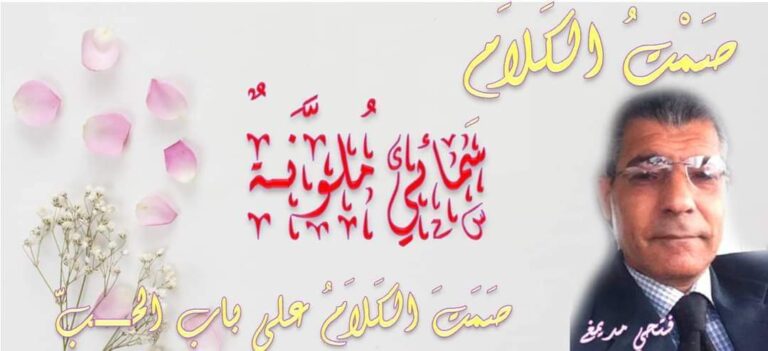 صَمْتُ الكَلاَمَ
سَمَائِي مُلوَّنَةٌ
صَمَتَ الكَلاَمُ على باب الحـــبّ
فتحي مديمغ